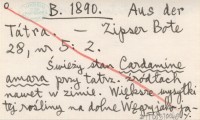 B. 1890. Aus der
Tátra. — Zipser Bote
28, nr 5: 2.
Świeży stan Cardamine
amara przy tatrz. źródłach
nawet w zimie. Większe wysyłki
tej rośliny na dolne Węgry